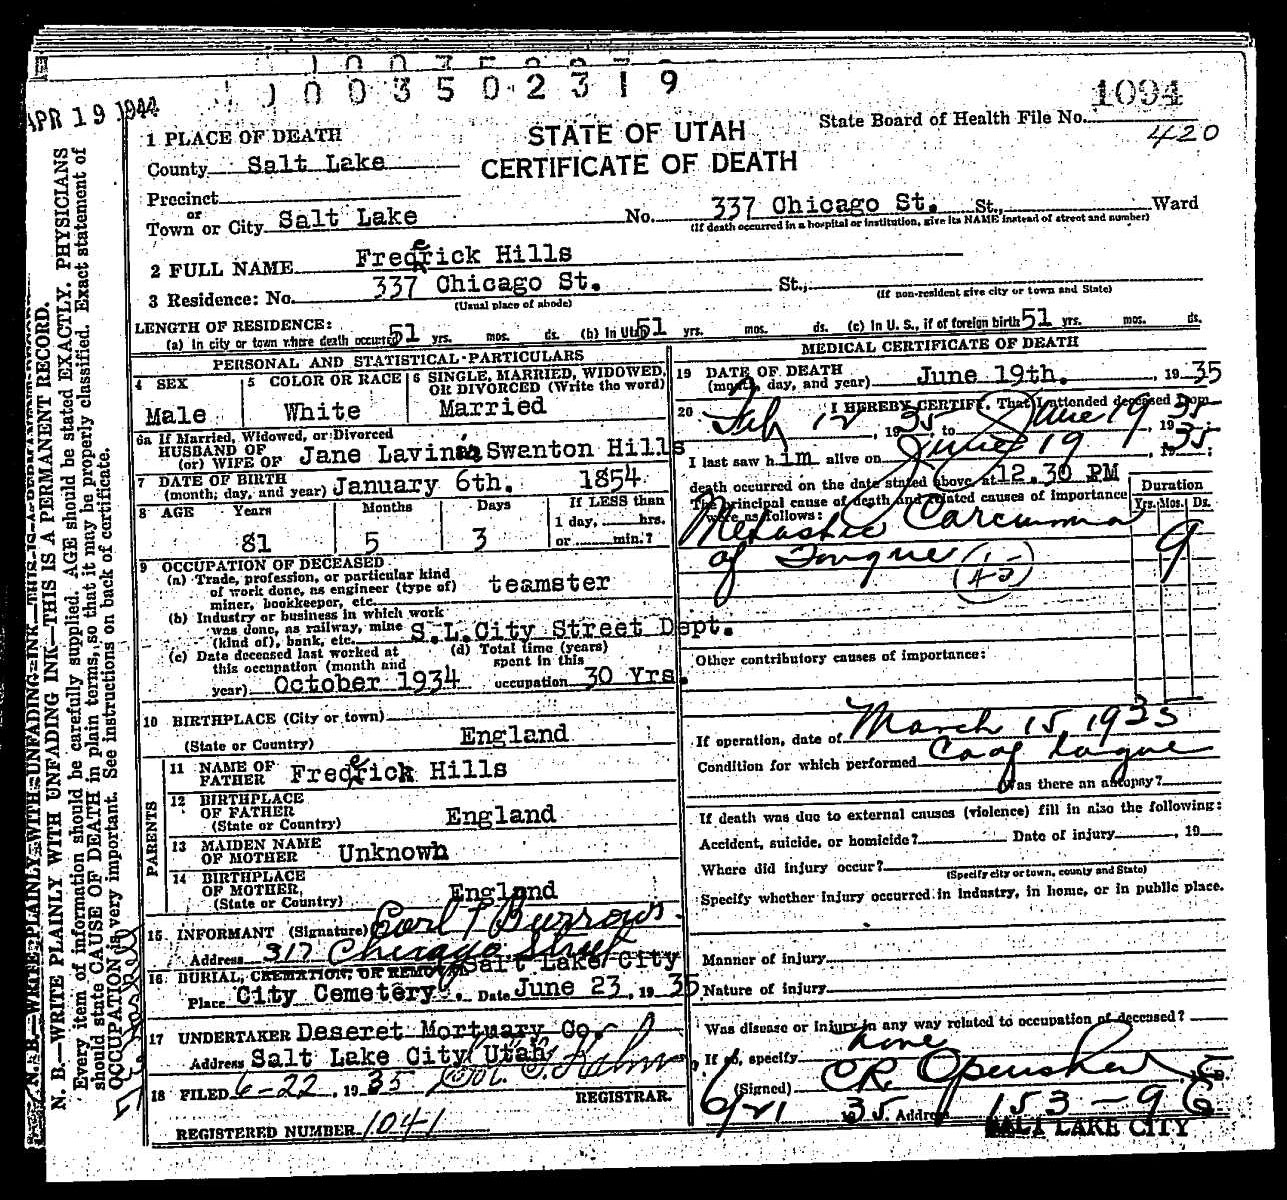 1003502319
APR 19 1944
1094
State Board of Health File No.
420
STATE OF UTAH
CERTIFICATE OF DEATH
1 PLACE OF DEATH
County Salt Lake
Precinct
or
Town or City Salt Lake No. 337 Chicago St. St., Ward
(If death occurred in a hospital or institution, give its NAME instead of street and number)
2 FULL NAME Frederick Hills
3 Residence: No. 337 Chicago St. St.,
(Usual place of abode) (If non-resident give city or town and State)
LENGTH OF RESIDENCE:
(a) In city or town where death occurred 51 yrs. mos. ds. (b) In Utah 51 yrs. mos. ds. (c) In U. S., if of foreign birth 51 yrs. mos. ds.
PERSONAL AND STATISTICAL PARTICULARS
4 SEX
Male
5 COLOR OR RACE
White
6 SINGLE, MARRIED, WIDOWED,
OR DIVORCED (Write the word)
Married
6a If Married, Widowed, or Divorced
HUSBAND OF
(or) WIFE OF Jane Lavinia Swanton Hills
7 DATE OF BIRTH
(month, day, and year) January 6th. 1854
8 AGE Years Months Days If LESS than
1 day, hrs.
or min.?
81 5 3
9 OCCUPATION OF DECEASED
(a) Trade, profession, or particular kind
of work done, as engineer (type of)
miner, bookkeeper, etc. teamster
(b) Industry or business in which work
was done, as railway, mine
(kind of), bank, etc. S.L.City Street Dept.
(c) Date deceased last worked at
this occupation (month and
year) October 1934
(d) Total time (years)
spent in this
occupation 30 Yrs.
10 BIRTHPLACE (City or town)
(State or Country) England
PARENTS
11 NAME OF
FATHER Frederick Hills
12 BIRTHPLACE
OF FATHER
(State or Country) England
13 MAIDEN NAME
OF MOTHER Unknown
14 BIRTHPLACE
OF MOTHER,
(State or Country) England
15 INFORMANT (Signature) Earl T Burrows
Address 317 Chicago Street
16 BURIAL, CREMATION, OR REMOVAL Salt Lake City
Place City Cemetery. Date June 23, 1935
17 UNDERTAKER Deseret Mortuary Co.
Address Salt Lake City Utah
18 FILED 6-22, 1935
REGISTRAR.
REGISTERED NUMBER 1041
MEDICAL CERTIFICATE OF DEATH
19 DATE OF DEATH
(month, day, and year) June 19th. 1935
20 I HEREBY CERTIFY, That I attended deceased from
Feb 12, 1935 to June 19 1935
I last saw him alive on June 19 1935;
death occurred on the date stated above, at 12.30 PM
The principal cause of death and related causes of importance
were as follows:
Duration
Yrs. Mos. Ds.
Carcinoma
of Tongue
9
Other contributory causes of importance:
If operation, date of March 15, 1935
Condition for which performed Ca of tongue
Was there an autopsy?
If death was due to external causes (violence) fill in also the following:
Accident, suicide, or homicide? Date of injury, 19
Where did injury occur?
(Specify city or town, county and State)
Specify whether injury occurred in industry, in home, or in public place.
Manner of injury
Nature of injury
Was disease or injury in any way related to occupation of deceased?
If so, specify none
(Signed) CR Openshaw
6/21 1935. Address 153-9 E
SALT LAKE CITY
N. B.—WRITE PLAINLY WITH UNFADING INK—THIS IS A PERMANENT RECORD.
Every item of information should be carefully supplied. AGE should be stated EXACTLY. PHYSICIANS
should state CAUSE OF DEATH in plain terms, so that it may be properly classified. Exact statement of
OCCUPATION is very important. See instructions on back of certificate.